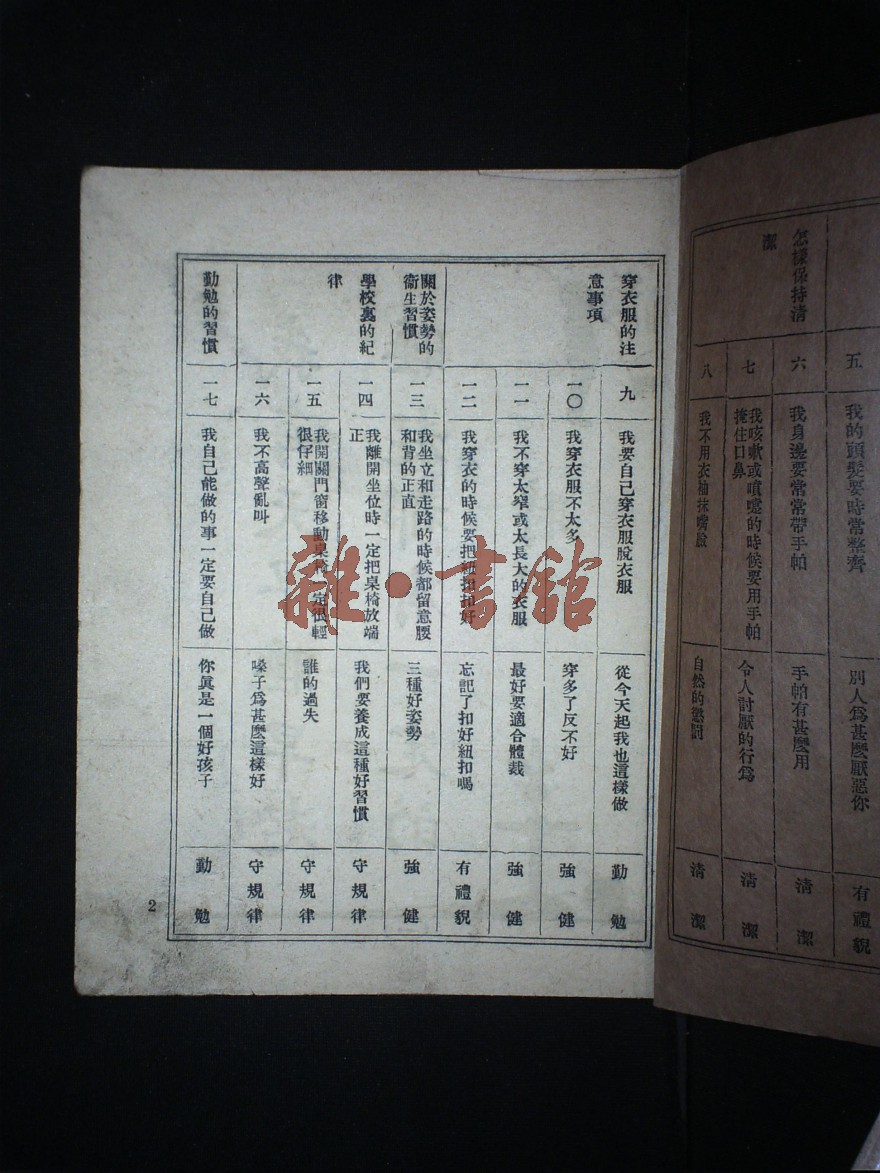 怎樣保持清
潔
五
我的頭髮要時常整齊
別人爲甚麼厭惡你
有禮貌
六
我身邊要常常帶手帕
手帕有甚麼用
清潔
七
我咳嗽或噴嚏的時候要用手帕
掩住口鼻
令人討厭的行爲
清潔
八
我不用衣袖抹嘴臉
自然的懲罰
清潔
穿衣服的注
意事項
九
我要自己穿衣服脫衣服
從今天起我也這樣做
勤勉
一〇
我穿衣服不太多
穿多了反不好
強健
一一
我不穿太窄或太長大的衣服
最好要適合體裁
強健
一二
我穿衣的時候要把紐扣扣好
忘記了扣好紐扣嗎
有禮貌
關於姿勢的
衞生習慣
一三
我坐立和走路的時候都留意腰
和背的正直
三種好姿勢
強健
學校裏的紀
律
一四
我離開坐位時一定把桌椅放端
正
我們要養成這種好習慣
守規律
一五
我開關門窗移動桌椅一定很輕
很仔細
誰的過失
守規律
一六
我不高聲亂叫
嗓子爲甚麼這樣好
守規律
勤勉的習慣
一七
我自己能做的事一定要自己做
你眞是一個好孩子
勤勉
2
雜·書館